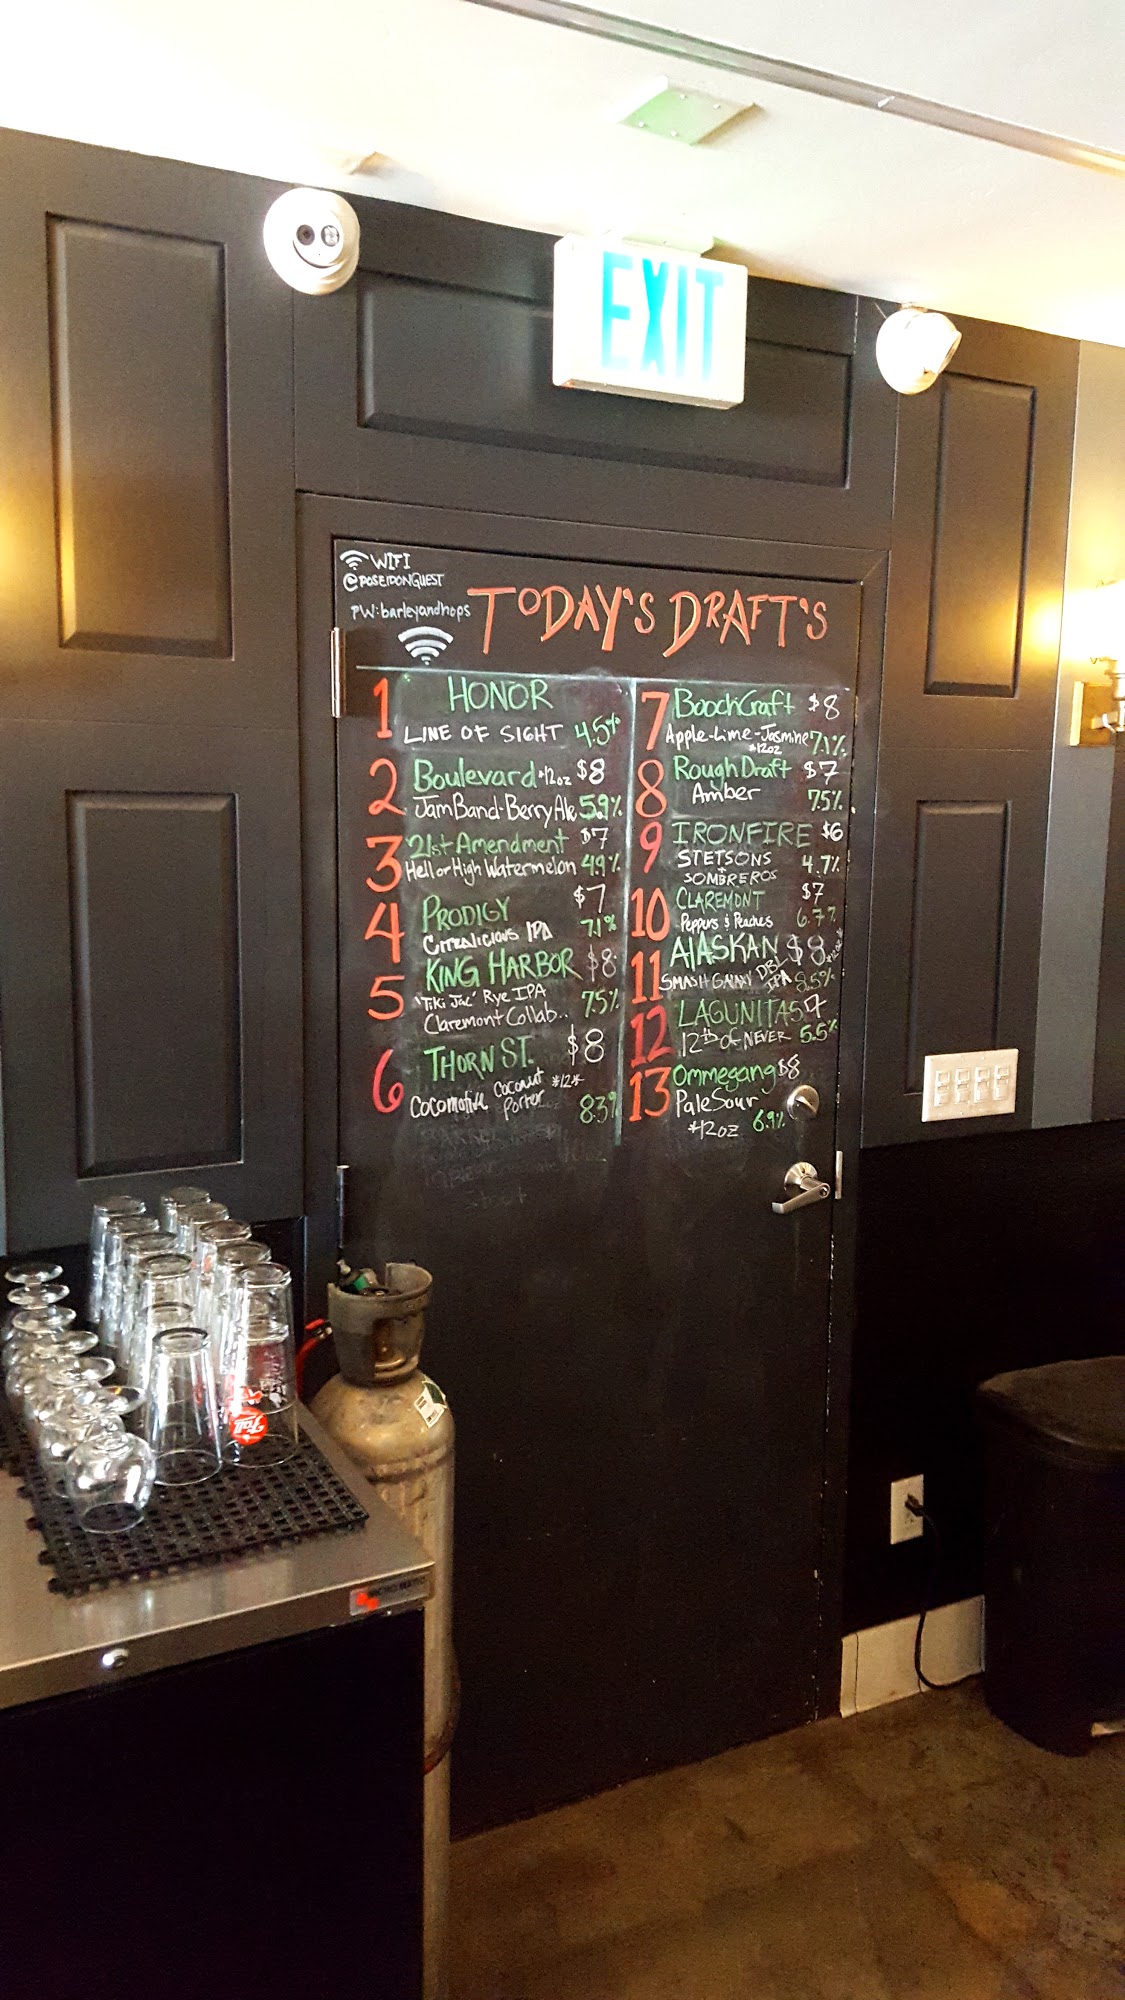 EXIT
WIFI
@POSEIDONGUEST
PW:barleyandhops
TODAY'S DRAFT'S
1 HONOR
LINE OF SIGHT 4.5%
2 Boulevard *12oz $8
Jam Band-Berry Ale 5.9%
3 21st Amendment $7
Hell or High Watermelon 4.9%
4 PRODIGY $7
CITRALICIOUS IPA 7.1%
5 KING HARBOR $8
"Tiki Jac" Rye IPA 7.5%
Claremont Collab..
6 THORN ST. $8
COCOMOTIVE Coconut *12*
Porter 8.3%
7 BoochCraft $8
Apple-Lime-Jasmine 7.1%
*12oz
8 Rough Draft $7
Amber 7.5%
9 IRONFIRE $6
STETSONS 4.7%
+ SOMBREROS
10 CLAREMONT $7
Peppers & Peaches 6.7%
11 ALASKAN $8
SMASH GALAXY DBL IPA 8.5%
12 LAGUNITAS 7
12th of NEVER 5.5%
13 Ommegang $8
Pale Sour 6.9%
*12oz
Stout
Full